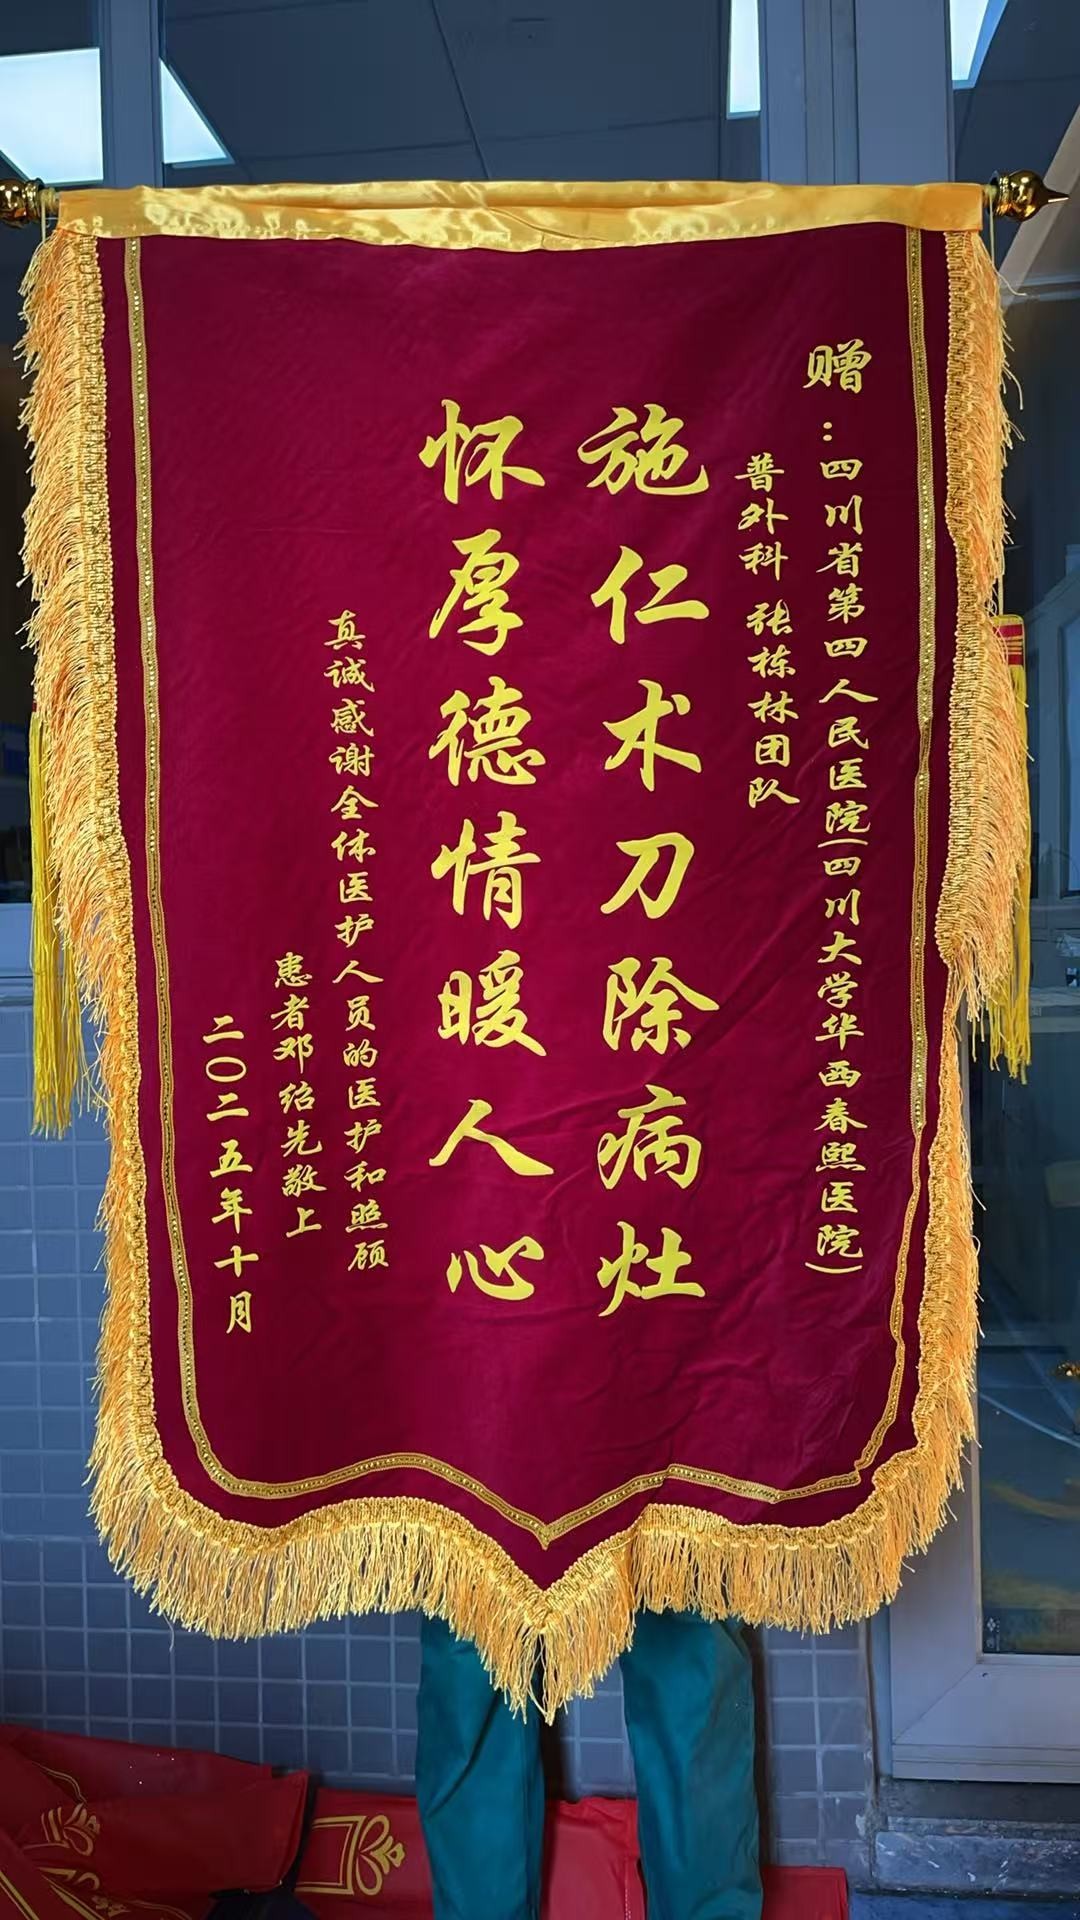 赠：四川省第四人民医院(四川大学华西春熙医院)
普外科 张栋林团队
施仁术刀除病灶
怀厚德情暖人心
真诚感谢全体医护人员的医护和照顾
患者邓绍先敬上
二〇二五年十月